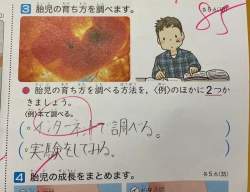 3 胎児の育ち方を調べます。
● 胎児の育ち方を調べる方法を、〈例〉のほかに2つか
きましょう。
〈例〉本で調べる。
インターネットで調べる。
実験をしてみる。
4 胎児の成長をまとめます。